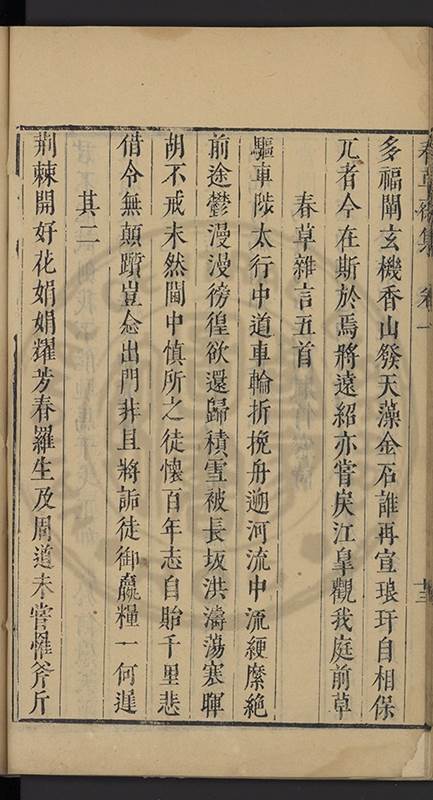 多福闡玄機香山發天藻金石誰再宣琅玕自相保
兀者今在斯於焉將遠紹亦嘗戾江臯觀我庭前草
春草雜言五首
驅車陟太行中道車輪折挽舟遡河流中流綆縻絶
前途鬱漫漫徬徨欲還歸積雪被長坂洪濤蕩塞暉
胡不戒未然閫中慎所之徒懷百年志自貽千里悲
借令無顛躓豈念出門非且將詬徒御羸糧一何遲
其二
荆棘開好花娟娟耀芳春羅生及周道未嘗惟斧斤